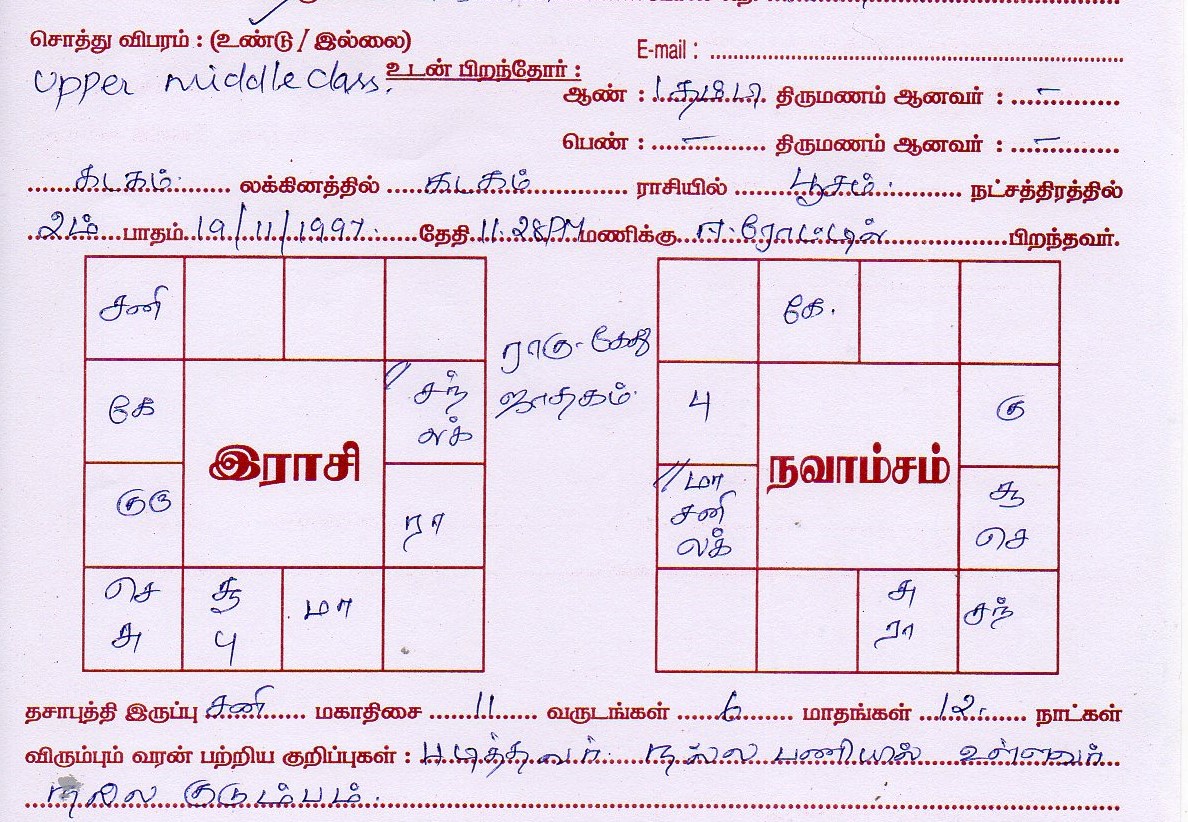 சொத்து விபரம் : (உண்டு / இல்லை)
E-mail :
upper middleclass.
உடன் பிறந்தோர் :
ஆண் : 1 தம்பி திருமணம் ஆனவர் : –
பெண் : – திருமணம் ஆனவர் : –
கடகம் லக்கினத்தில் கடகம் ராசியில் பூசம் நட்சத்திரத்தில்
2ம் பாதம் 19/11/1997 தேதி 11.28PM மணிக்கு ஈரோட்டில் பிறந்தவர்.
சனி
கே
சந்
லக்
குரு
இராசி
ரா
செ
சு
சூ
பு
மா
ராகு-கேது
ஜாதகம்
கே.
கு
மா
சனி
லக்
நவாம்சம்
சூ
செ
சு
ரா
சந்
தசாபுத்தி இருப்பு சனி மகாதிசை 11 வருடங்கள் 6 மாதங்கள் 12 நாட்கள்
விரும்பும் வரன் பற்றிய குறிப்புகள் : படித்தவர் நல்ல பணியில் உள்ளவர்
நல்ல குடும்பம்.